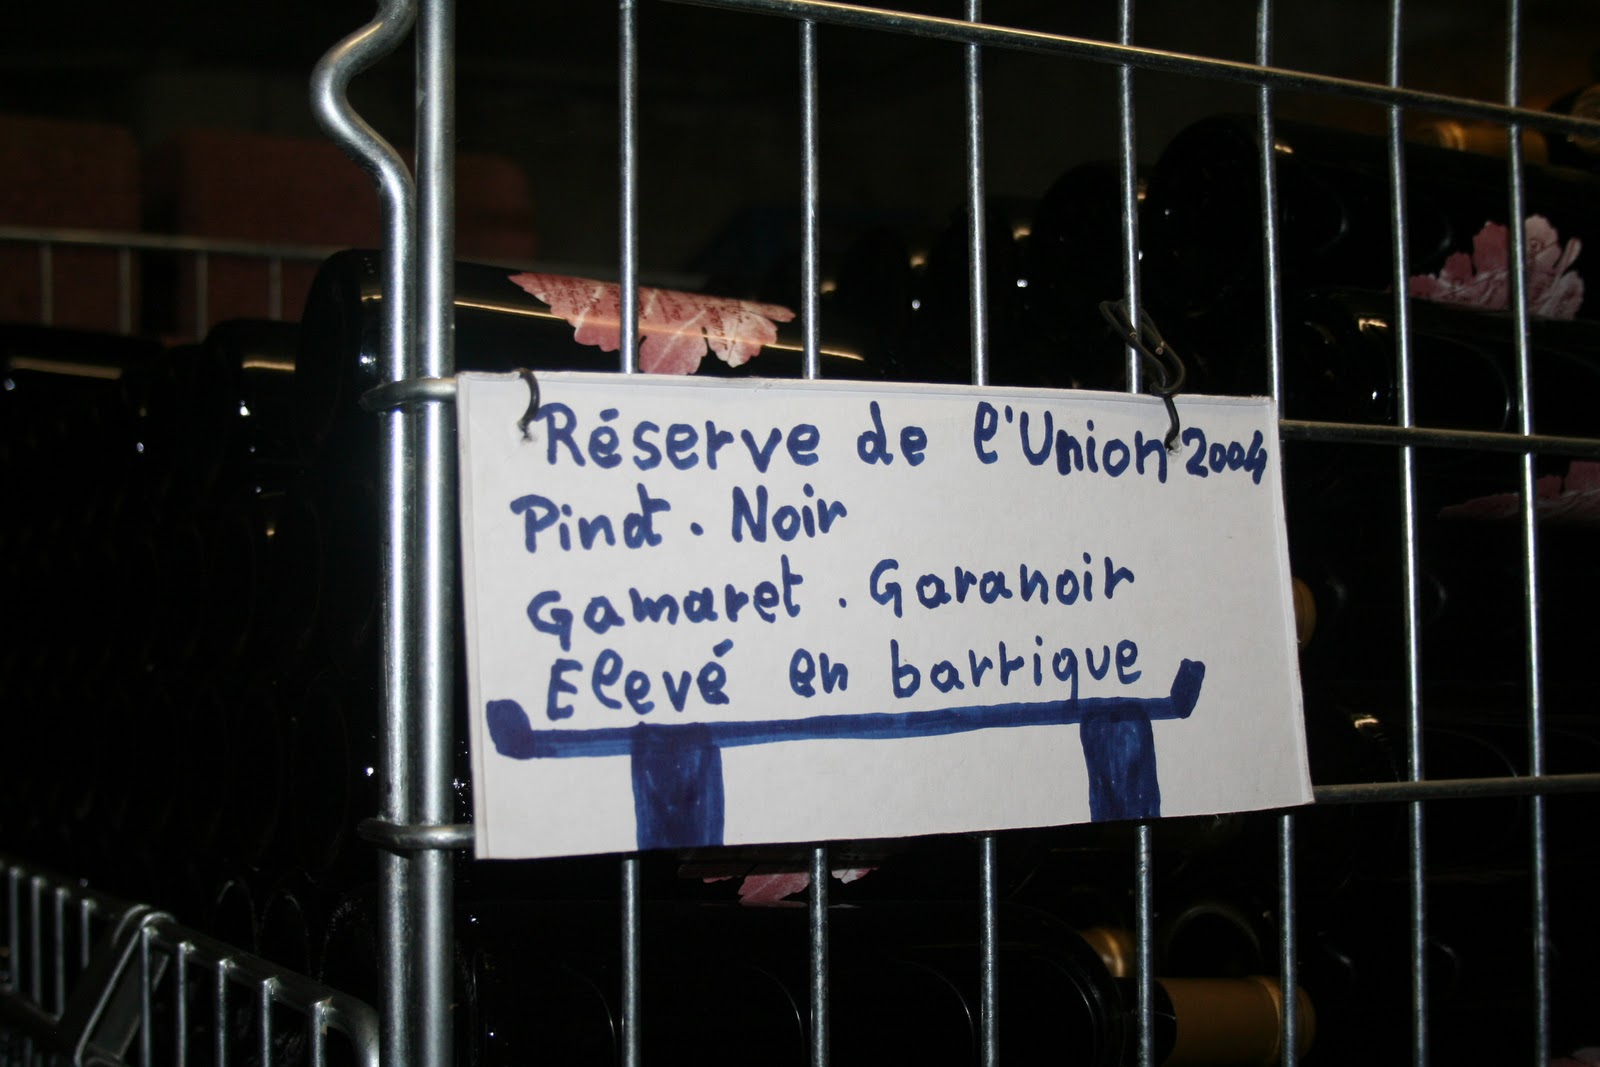 Réserve de l'Union 2004
Pinot. Noir
Gamaret. Garanoir
Elevé en barrique